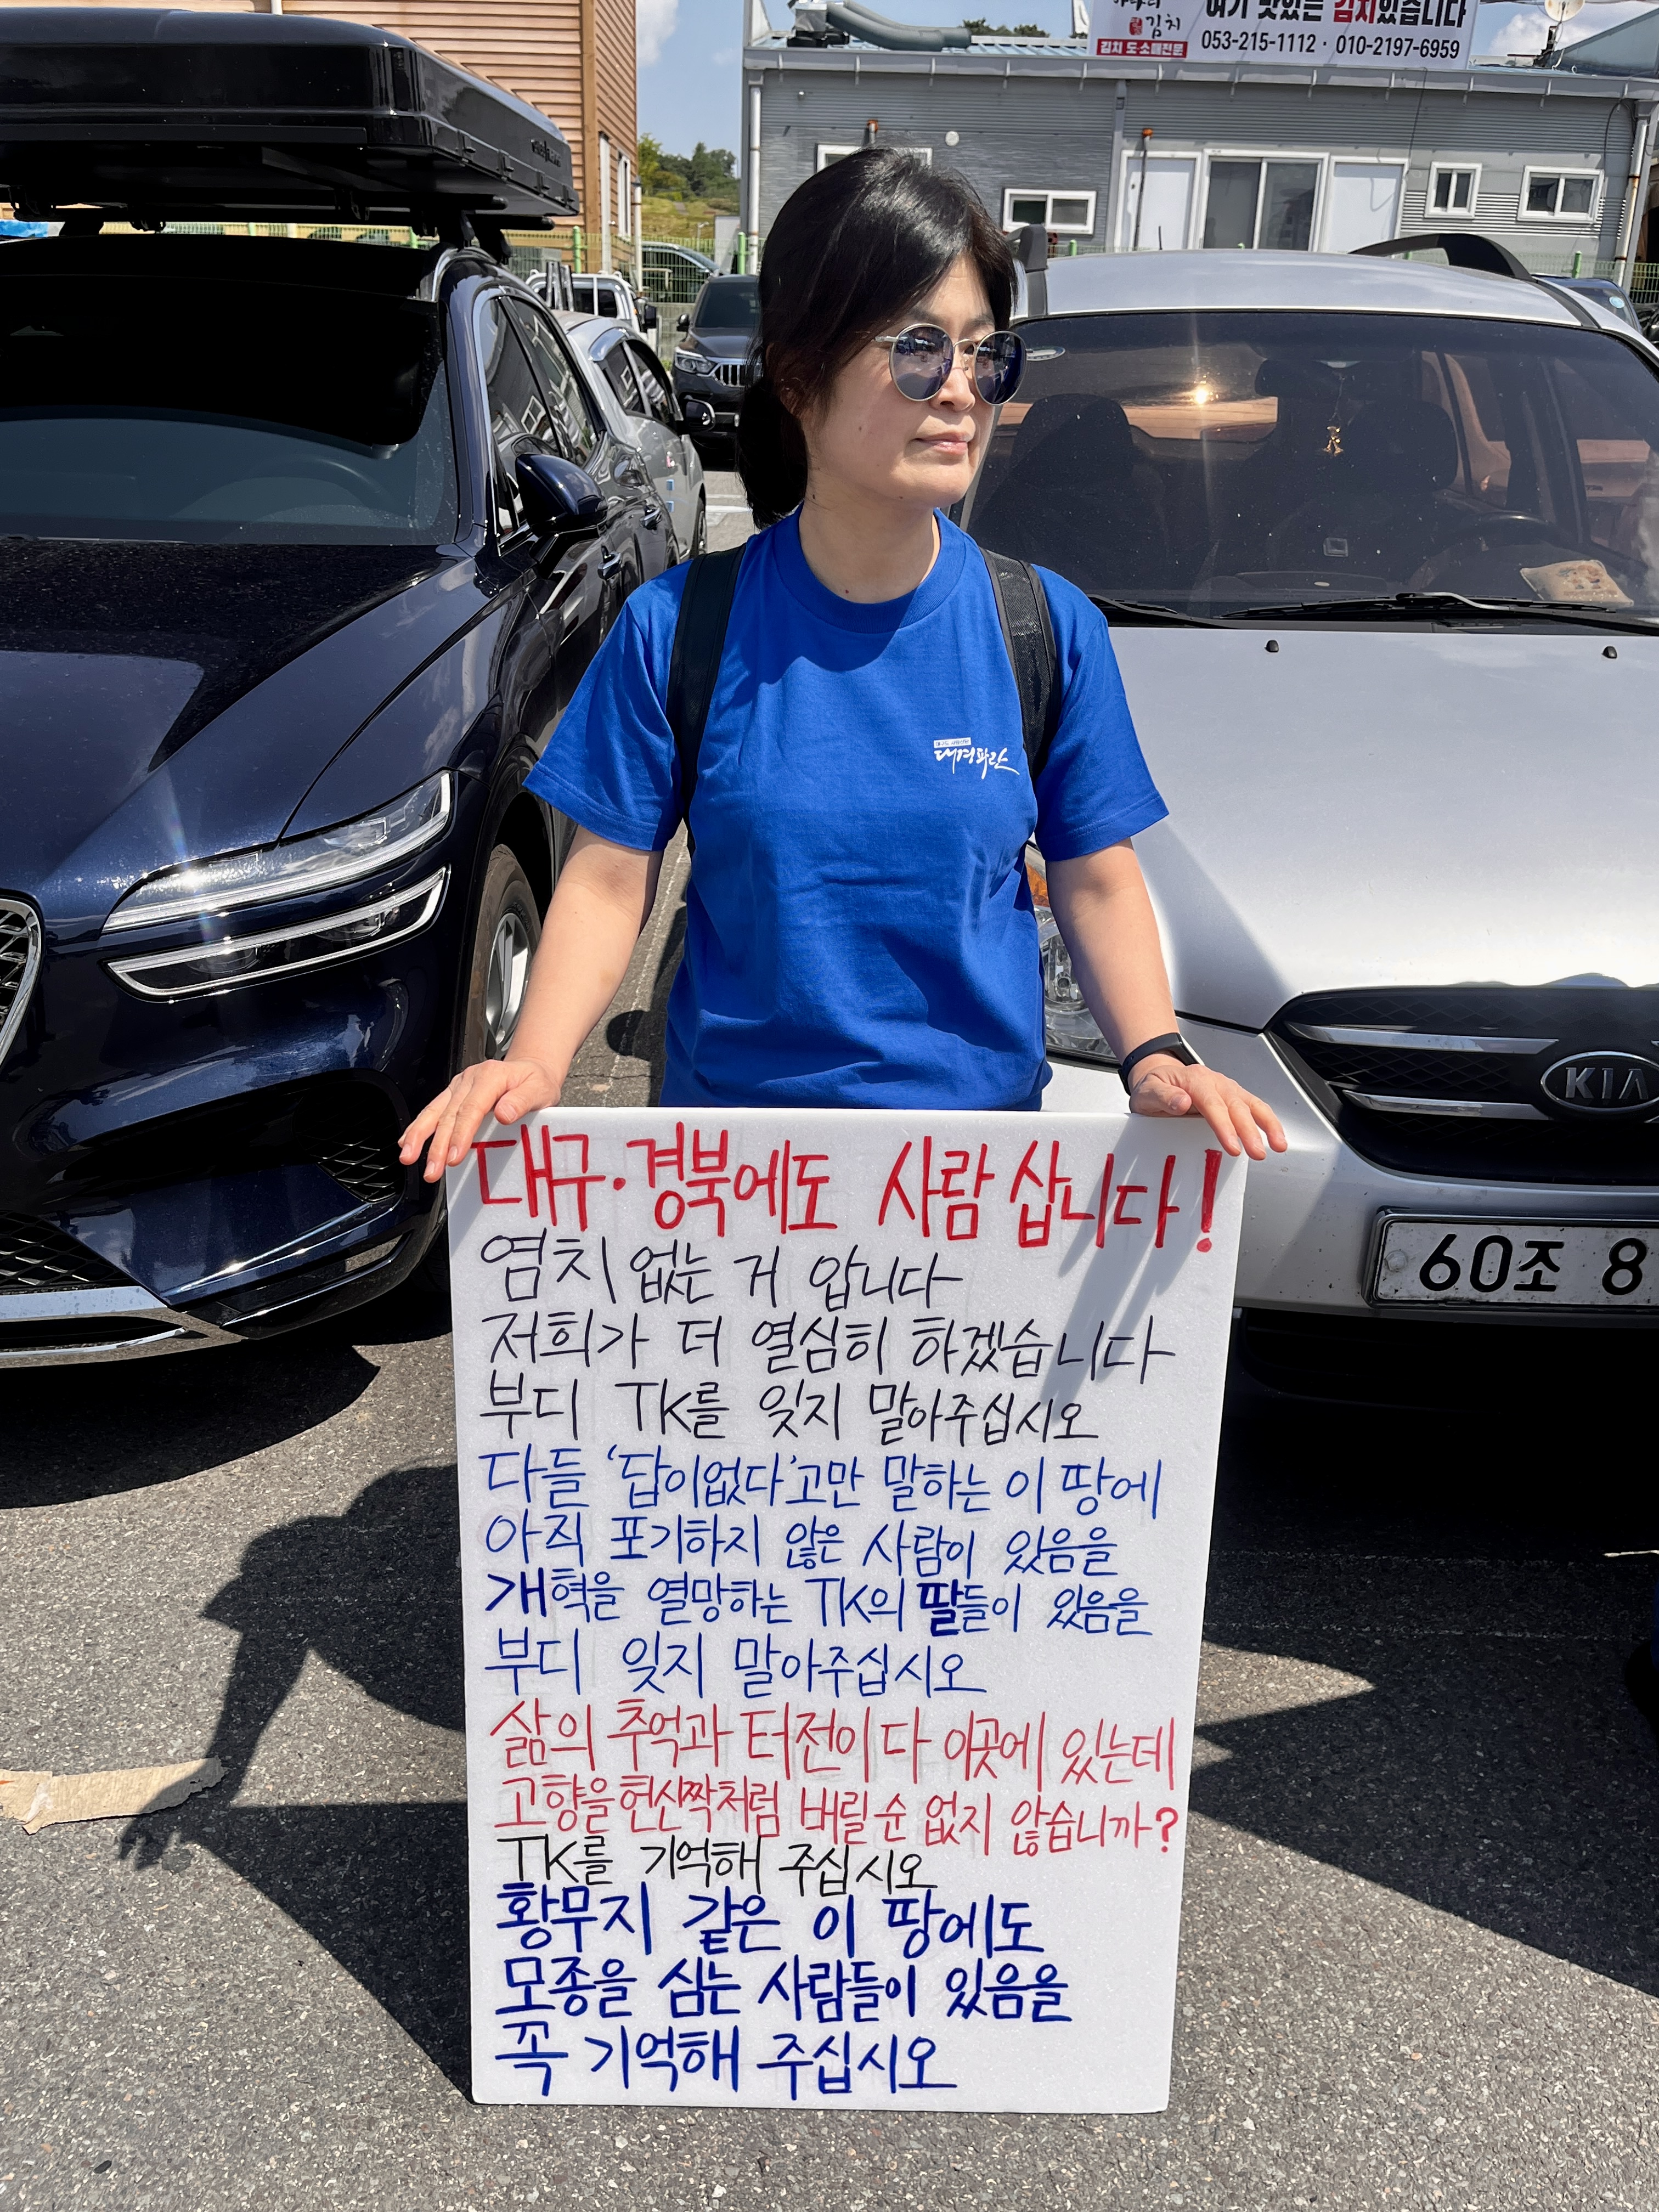 여기 맛있는 김치있습니다
김치
김치 도·소매전문
053-215-1112 · 010-2197-6959
대경파란
KIA
60조 8
대구·경북에도 사람 삽니다!
염치 없는 거 압니다
저희가 더 열심히 하겠습니다
부디 TK를 잊지 말아주십시오
다들 '답이없다'고만 말하는 이 땅에
아직 포기하지 않은 사람이 있음을
개혁을 열망하는 TK의 딸들이 있음을
부디 잊지 말아주십시오
삶의 추억과 터전이 다 이곳에 있는데
고향을 헌신짝처럼 버릴 순 없지 않습니까?
TK를 기억해 주십시오
황무지 같은 이 땅에도
모종을 심는 사람들이 있음을
꼭 기억해 주십시오